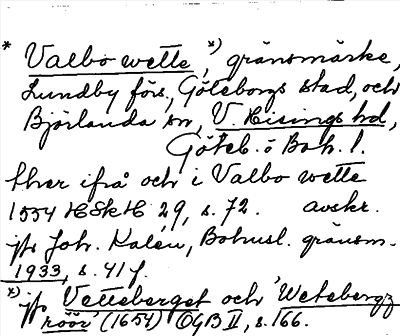 * Valbo wette, x) gränsmärke,
Lundby förs., Göteborgs stad, och
Björlanda sn, V. Hisings hd,
Göteb. o Boh. l.
ther ifrå och i Valbo wette
1554 HSkH 29, s. 72. avskr.
jfr Joh. Kalén, Bohusl. gränsm.
1933, s. 41 f.
x) jfr Vetteberget och 'Wetebergz
röör' (1654) OGB II, s. 166.